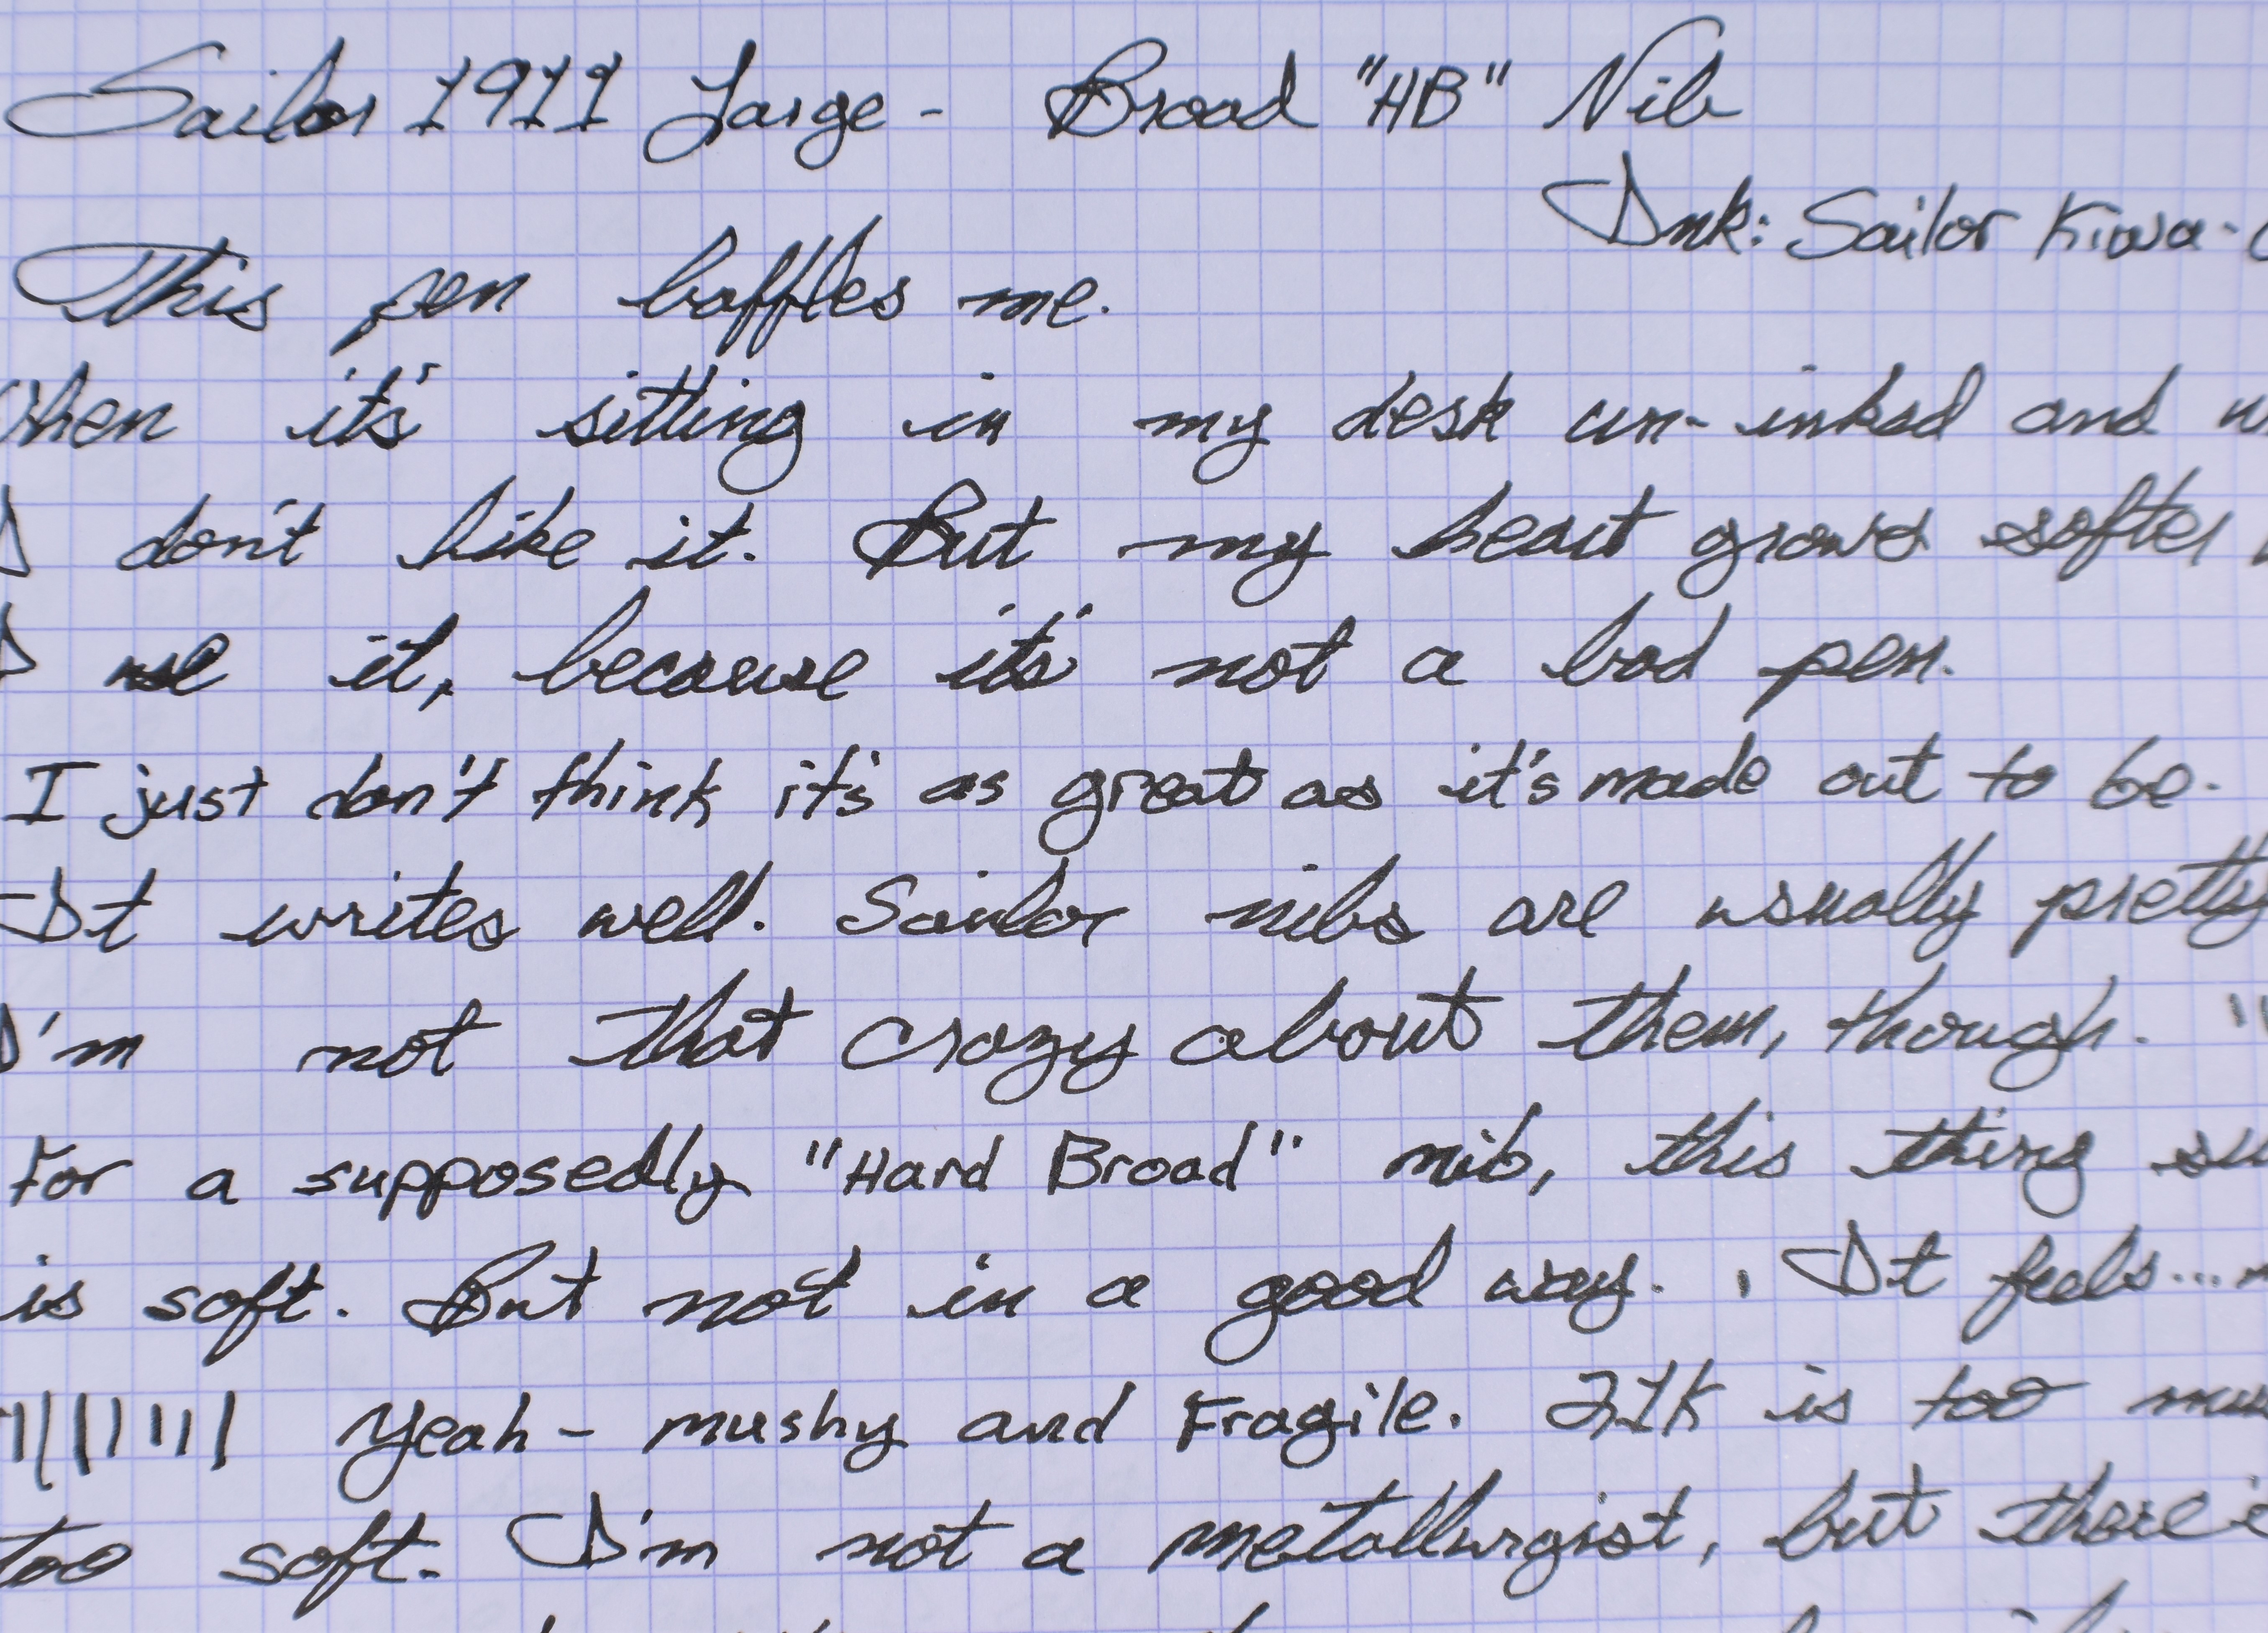 Sailor 1911 Large - Broad "HB" Nib
Ink: Sailor Kiwa-
This pen baffles me.
When it's sitting in my desk un-inked and
I don't like it. But my heart grows softer
I use it, because it's not a bad pen.
I just don't think it's as great as it's made out to be.
It writes well. Sailor nibs are usually pretty
I'm not that crazy about them, though. "
For a supposedly "Hard Broad" nib, this thing
is soft. But not in a good way. It feels...
Yeah - mushy and Fragile. 21K is too
too soft. I'm not a metallurgist, but there's